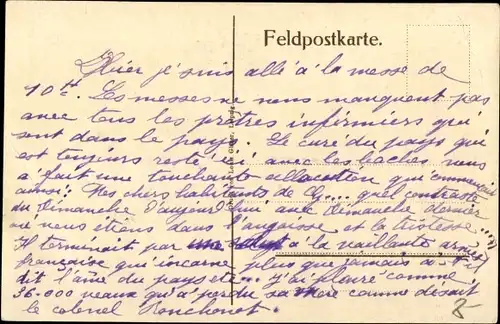 Feldpostkarte.
Hier je suis allé à la messe de
10h. Les messes ne nous manquent pas
avec tous les prêtres infirmiers qui
sont dans le pays. Le curé du pays qui
est toujours resté ici avec les boches nous
a fait une touchante allocution qui commençait
ainsi: Mes chers habitants de ... quel contraste
du Dimanche d'aujourd'hui avec Dimanche dernier
où nous étions dans l'angoisse et la tristesse
Il terminait par à la vaillante armée
française qui incarne plus que jamais
dit l'âme du pays etc... j'ai pleuré comme
36.000 veaux qui a perdu sa mère comme disait
le colonel Ronchonot.
8-